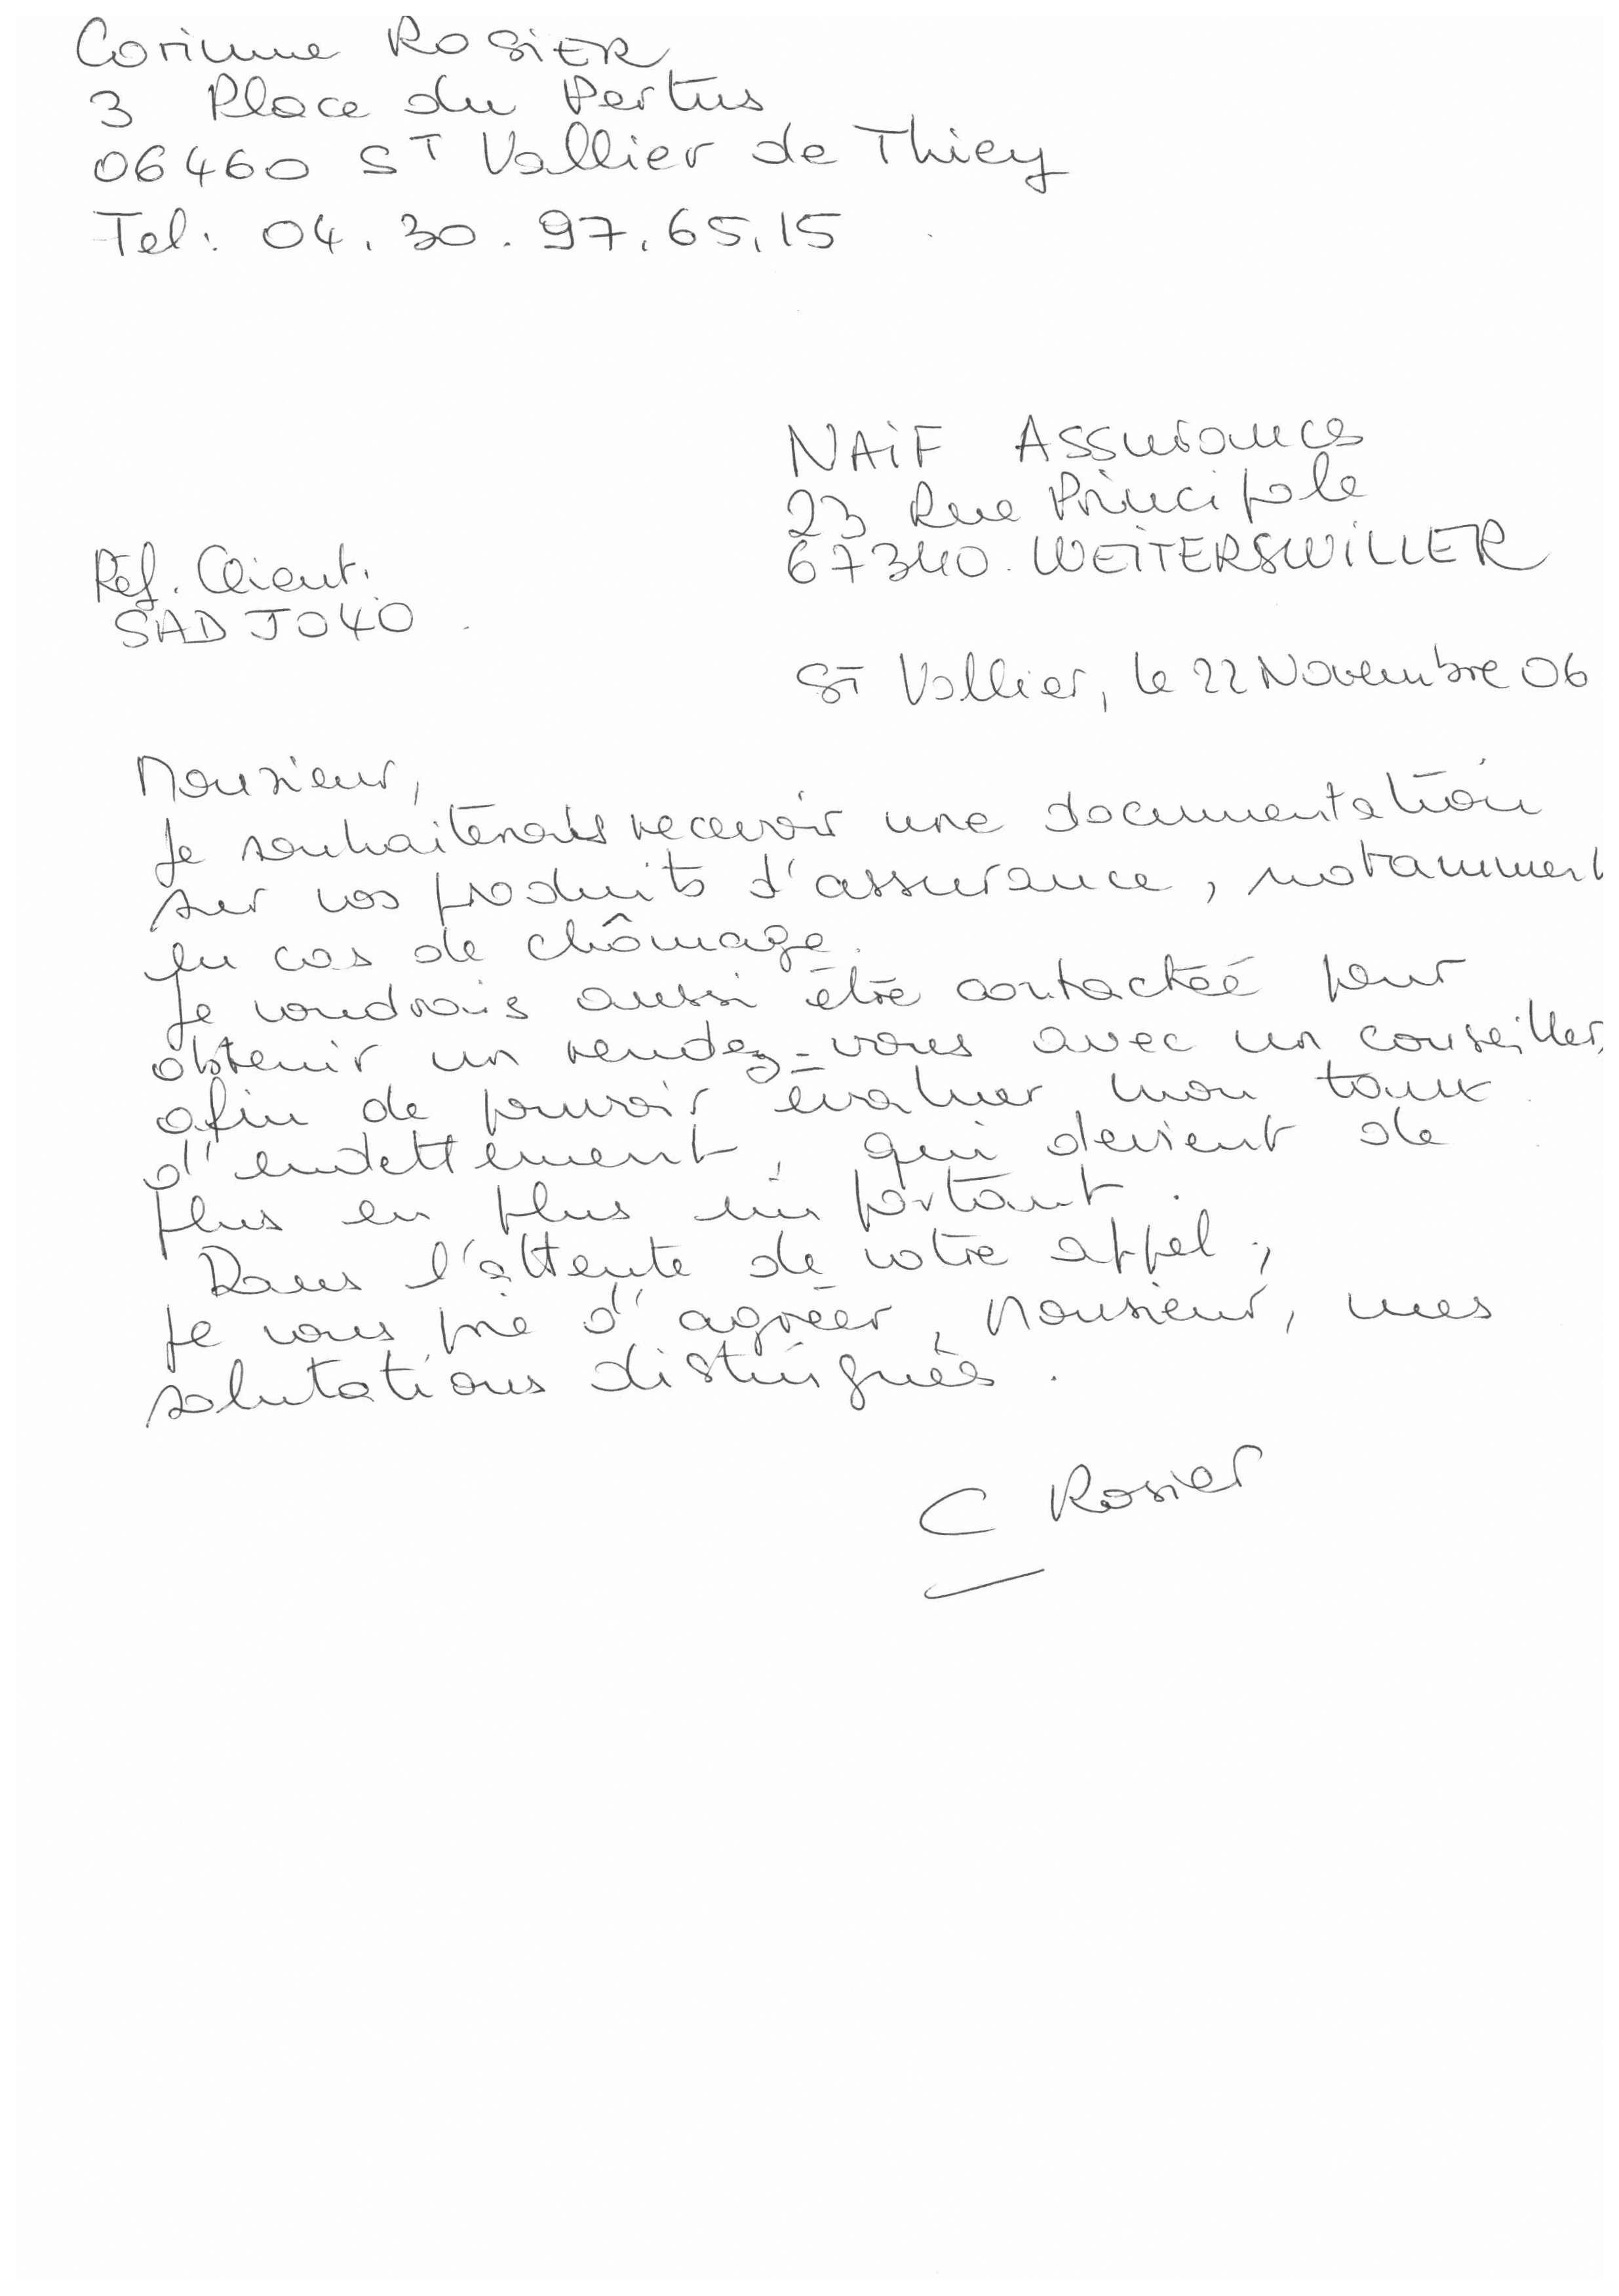 Corinne ROSIER
3 Place du Pertus
06460 ST Vallier de Thiey
Tel: 04.30.97.65.15
NAIF Assurances
23 Rue Principale
67340. WEITERSWILLER
Réf. Client.
SADJ040
St Vallier, le 22 Novembre 06
Monsieur,
Je souhaiterais recevoir une documentation
sur vos produits d'assurance, notamment
en cas de chômage.
Je voudrais aussi être contactée pour
obtenir un rendez-vous avec un conseiller,
afin de pouvoir évaluer mon taux
d'endettement, qui devient de
plus en plus important.
Dans l'attente de votre appel,
Je vous prie d'agréer, Monsieur, mes
salutations distinguées.
C Rosier